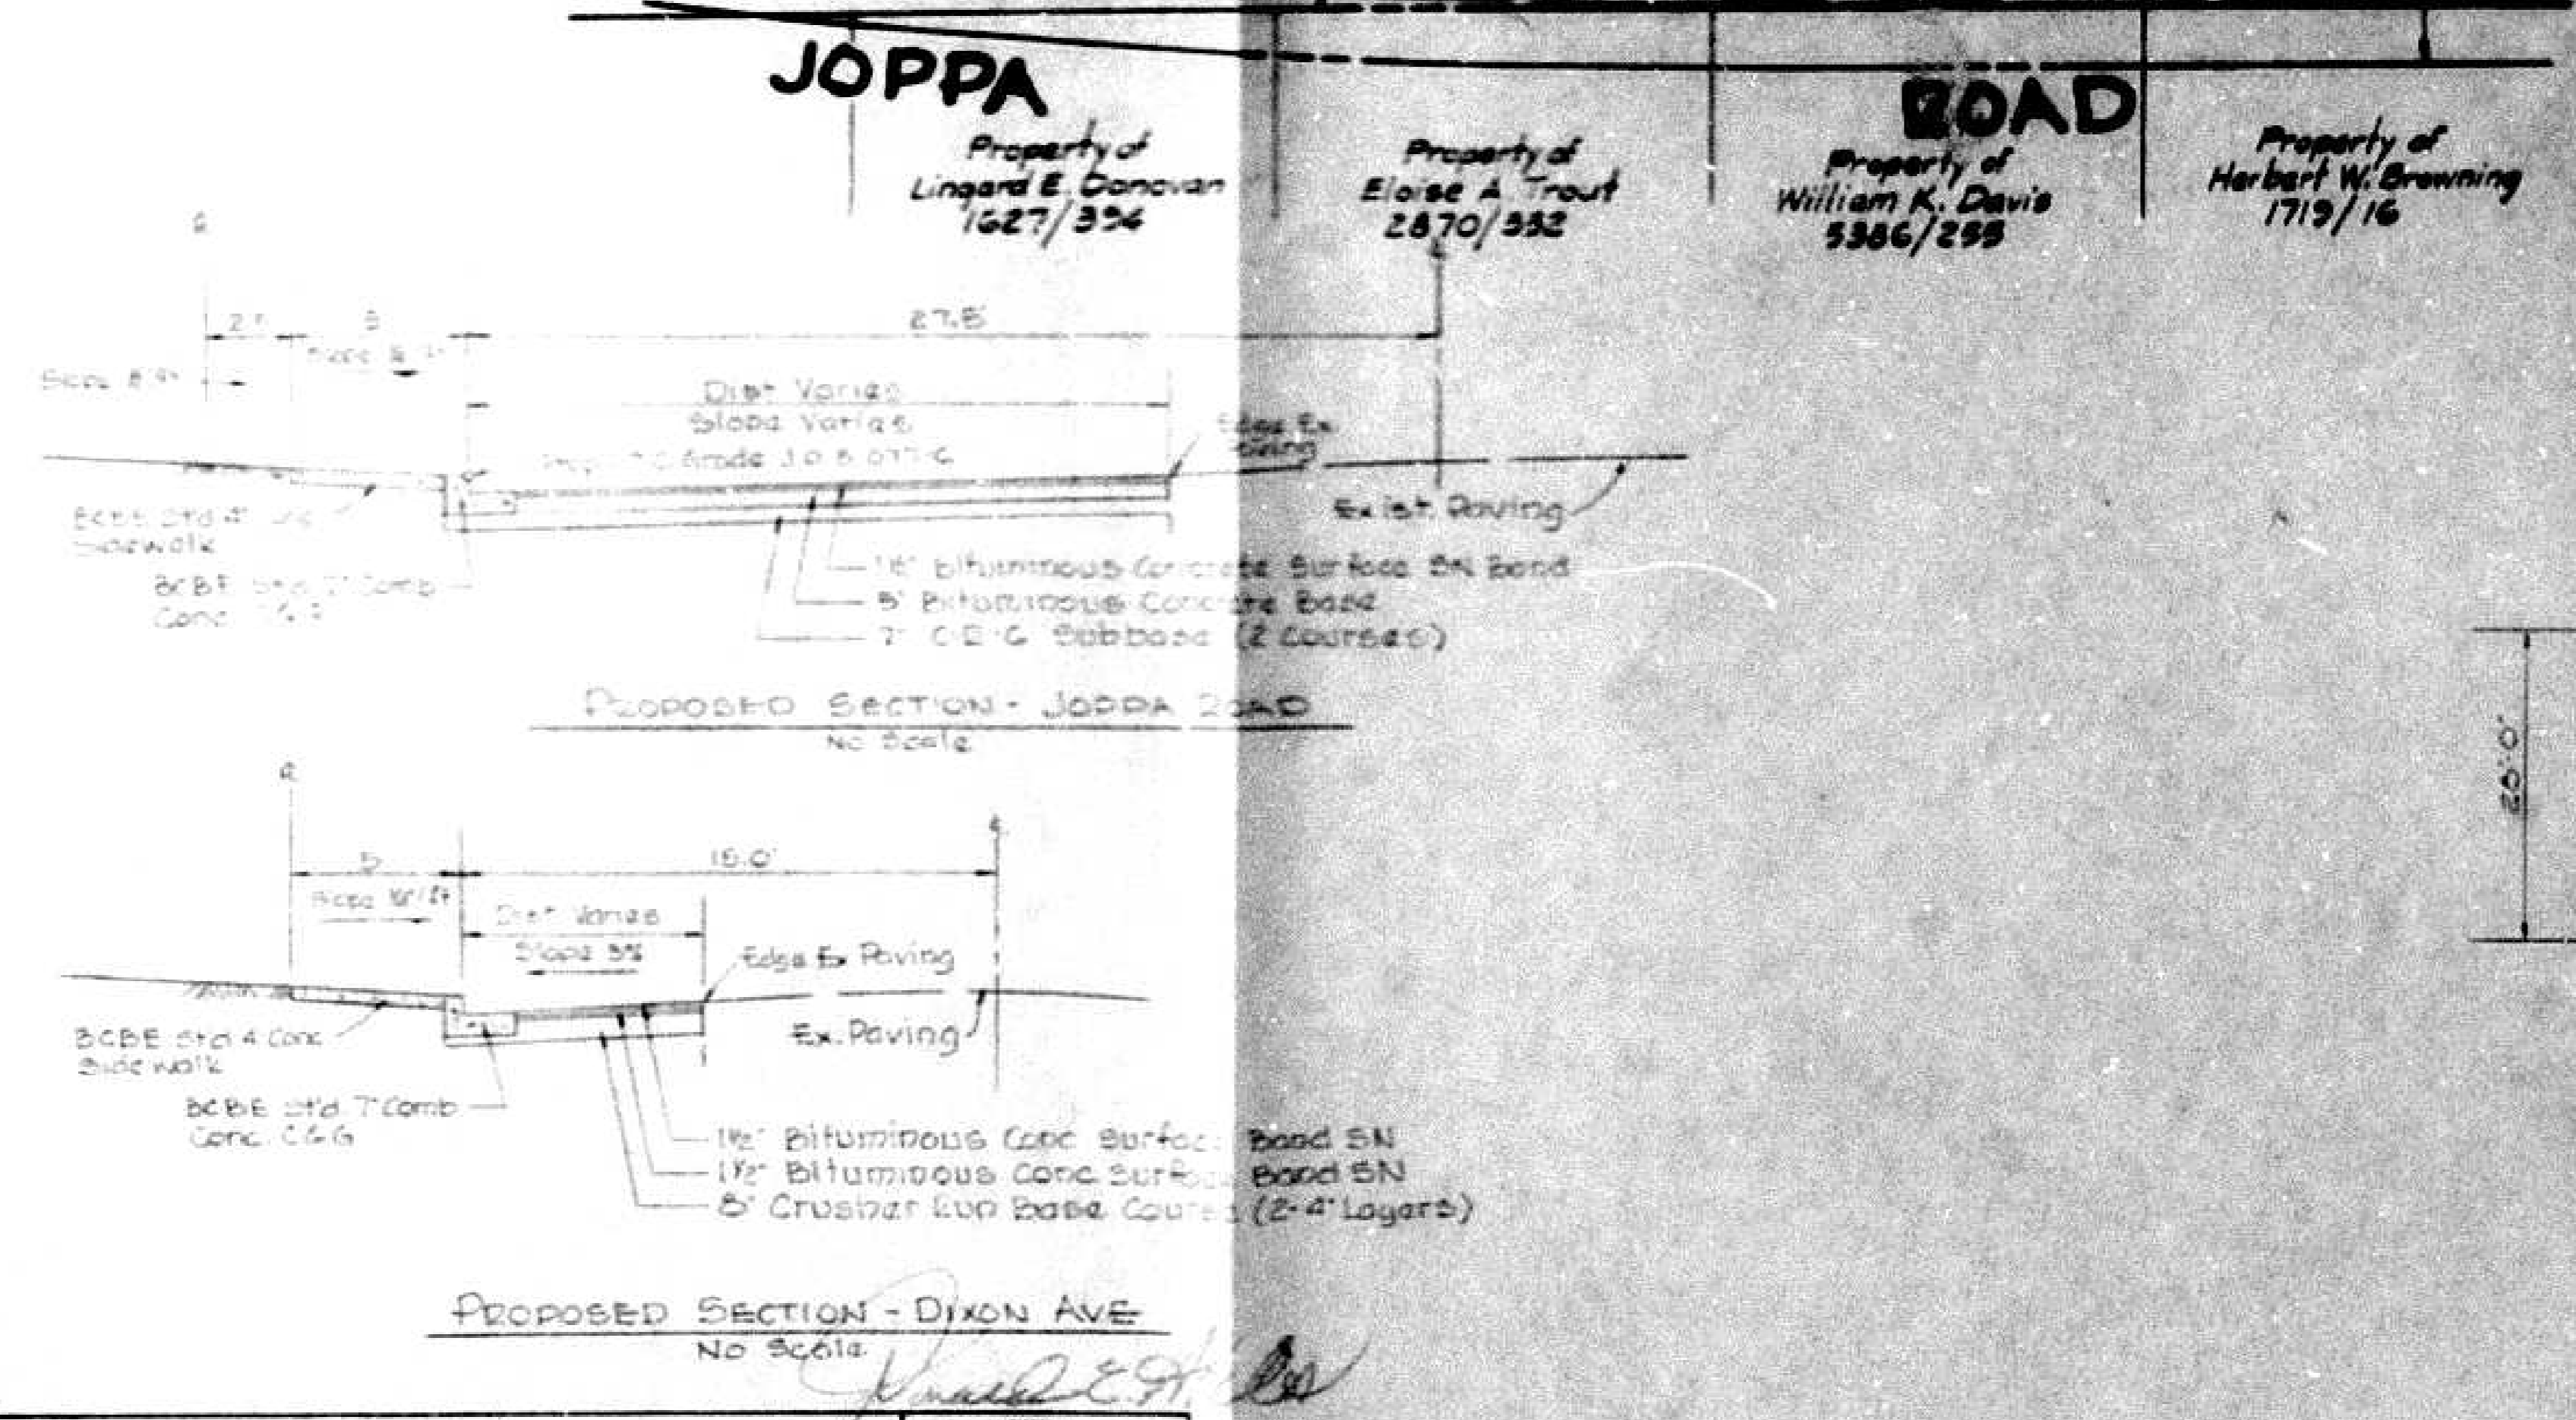 JOPPA ROAD
Property of
Lingard E. Donovan
1627/394
Property of
Eloise A. Trout
2870/332
Property of
William K. Davis
5386/255
Property of
Herbert W. Browning
1719/16
27.5'
Slope
Dist Varies
Slope Varies
Grade
Edge Ex.
Paving
Exist. Paving
BCBE Std 4"
Sidewalk
BCBE Std 7" Comb
Conc.
1½" Bituminous Concrete Surface SN Band
5" Bituminous Concrete Base
7" C.R.6 Subbase (2 Courses)
PROPOSED SECTION - JOPPA ROAD
No Scale
28'-0"
5'
15.0'
Slope
Dist Varies
Slope 3%
Edge Ex Paving
Ex. Paving
BCBE Std 4" Conc
Sidewalk
BCBE Std. 7" Comb
Conc. C&G
1½" Bituminous Conc Surface Band SN
1½" Bituminous Conc Surface Band SN
8" Crusher Run Base Course (2-4" Layers)
PROPOSED SECTION - DIXON AVE
No Scale